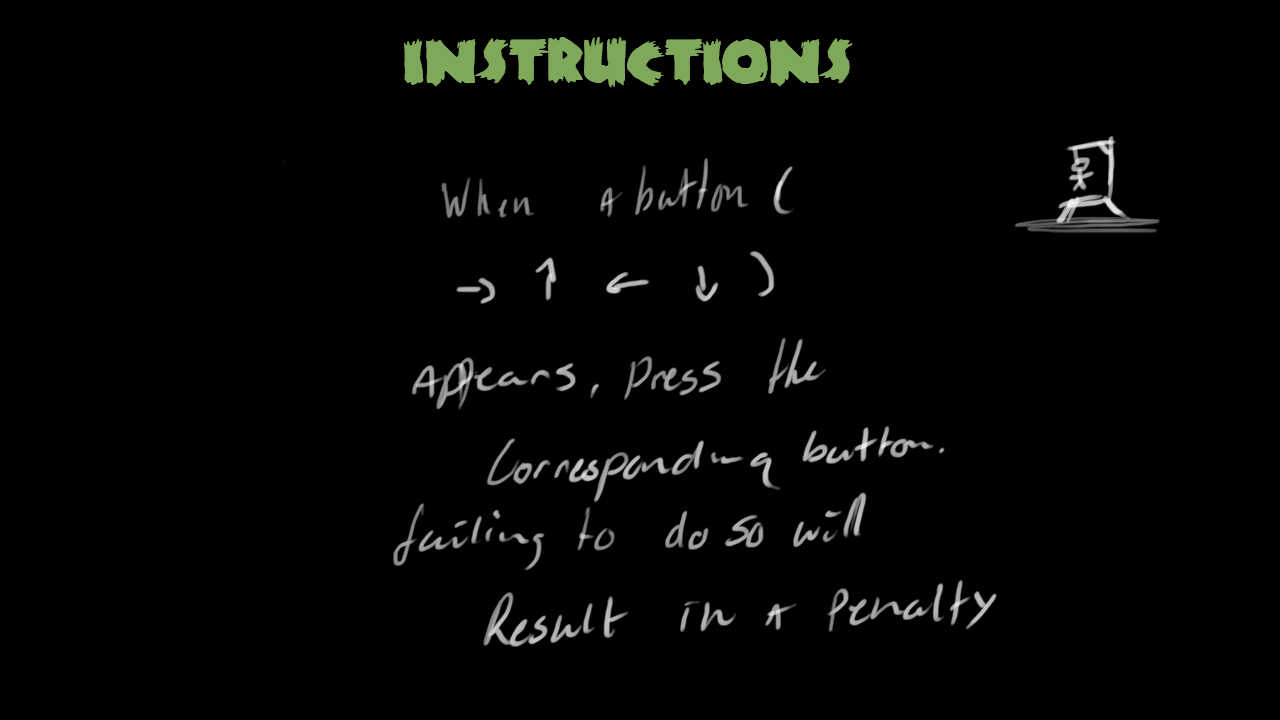 INSTRUCTIONS
When A button (
→ ↑ ← ↓ )
Appears, press the
Corresponding button.
failing to do so will
Result in A Penalty